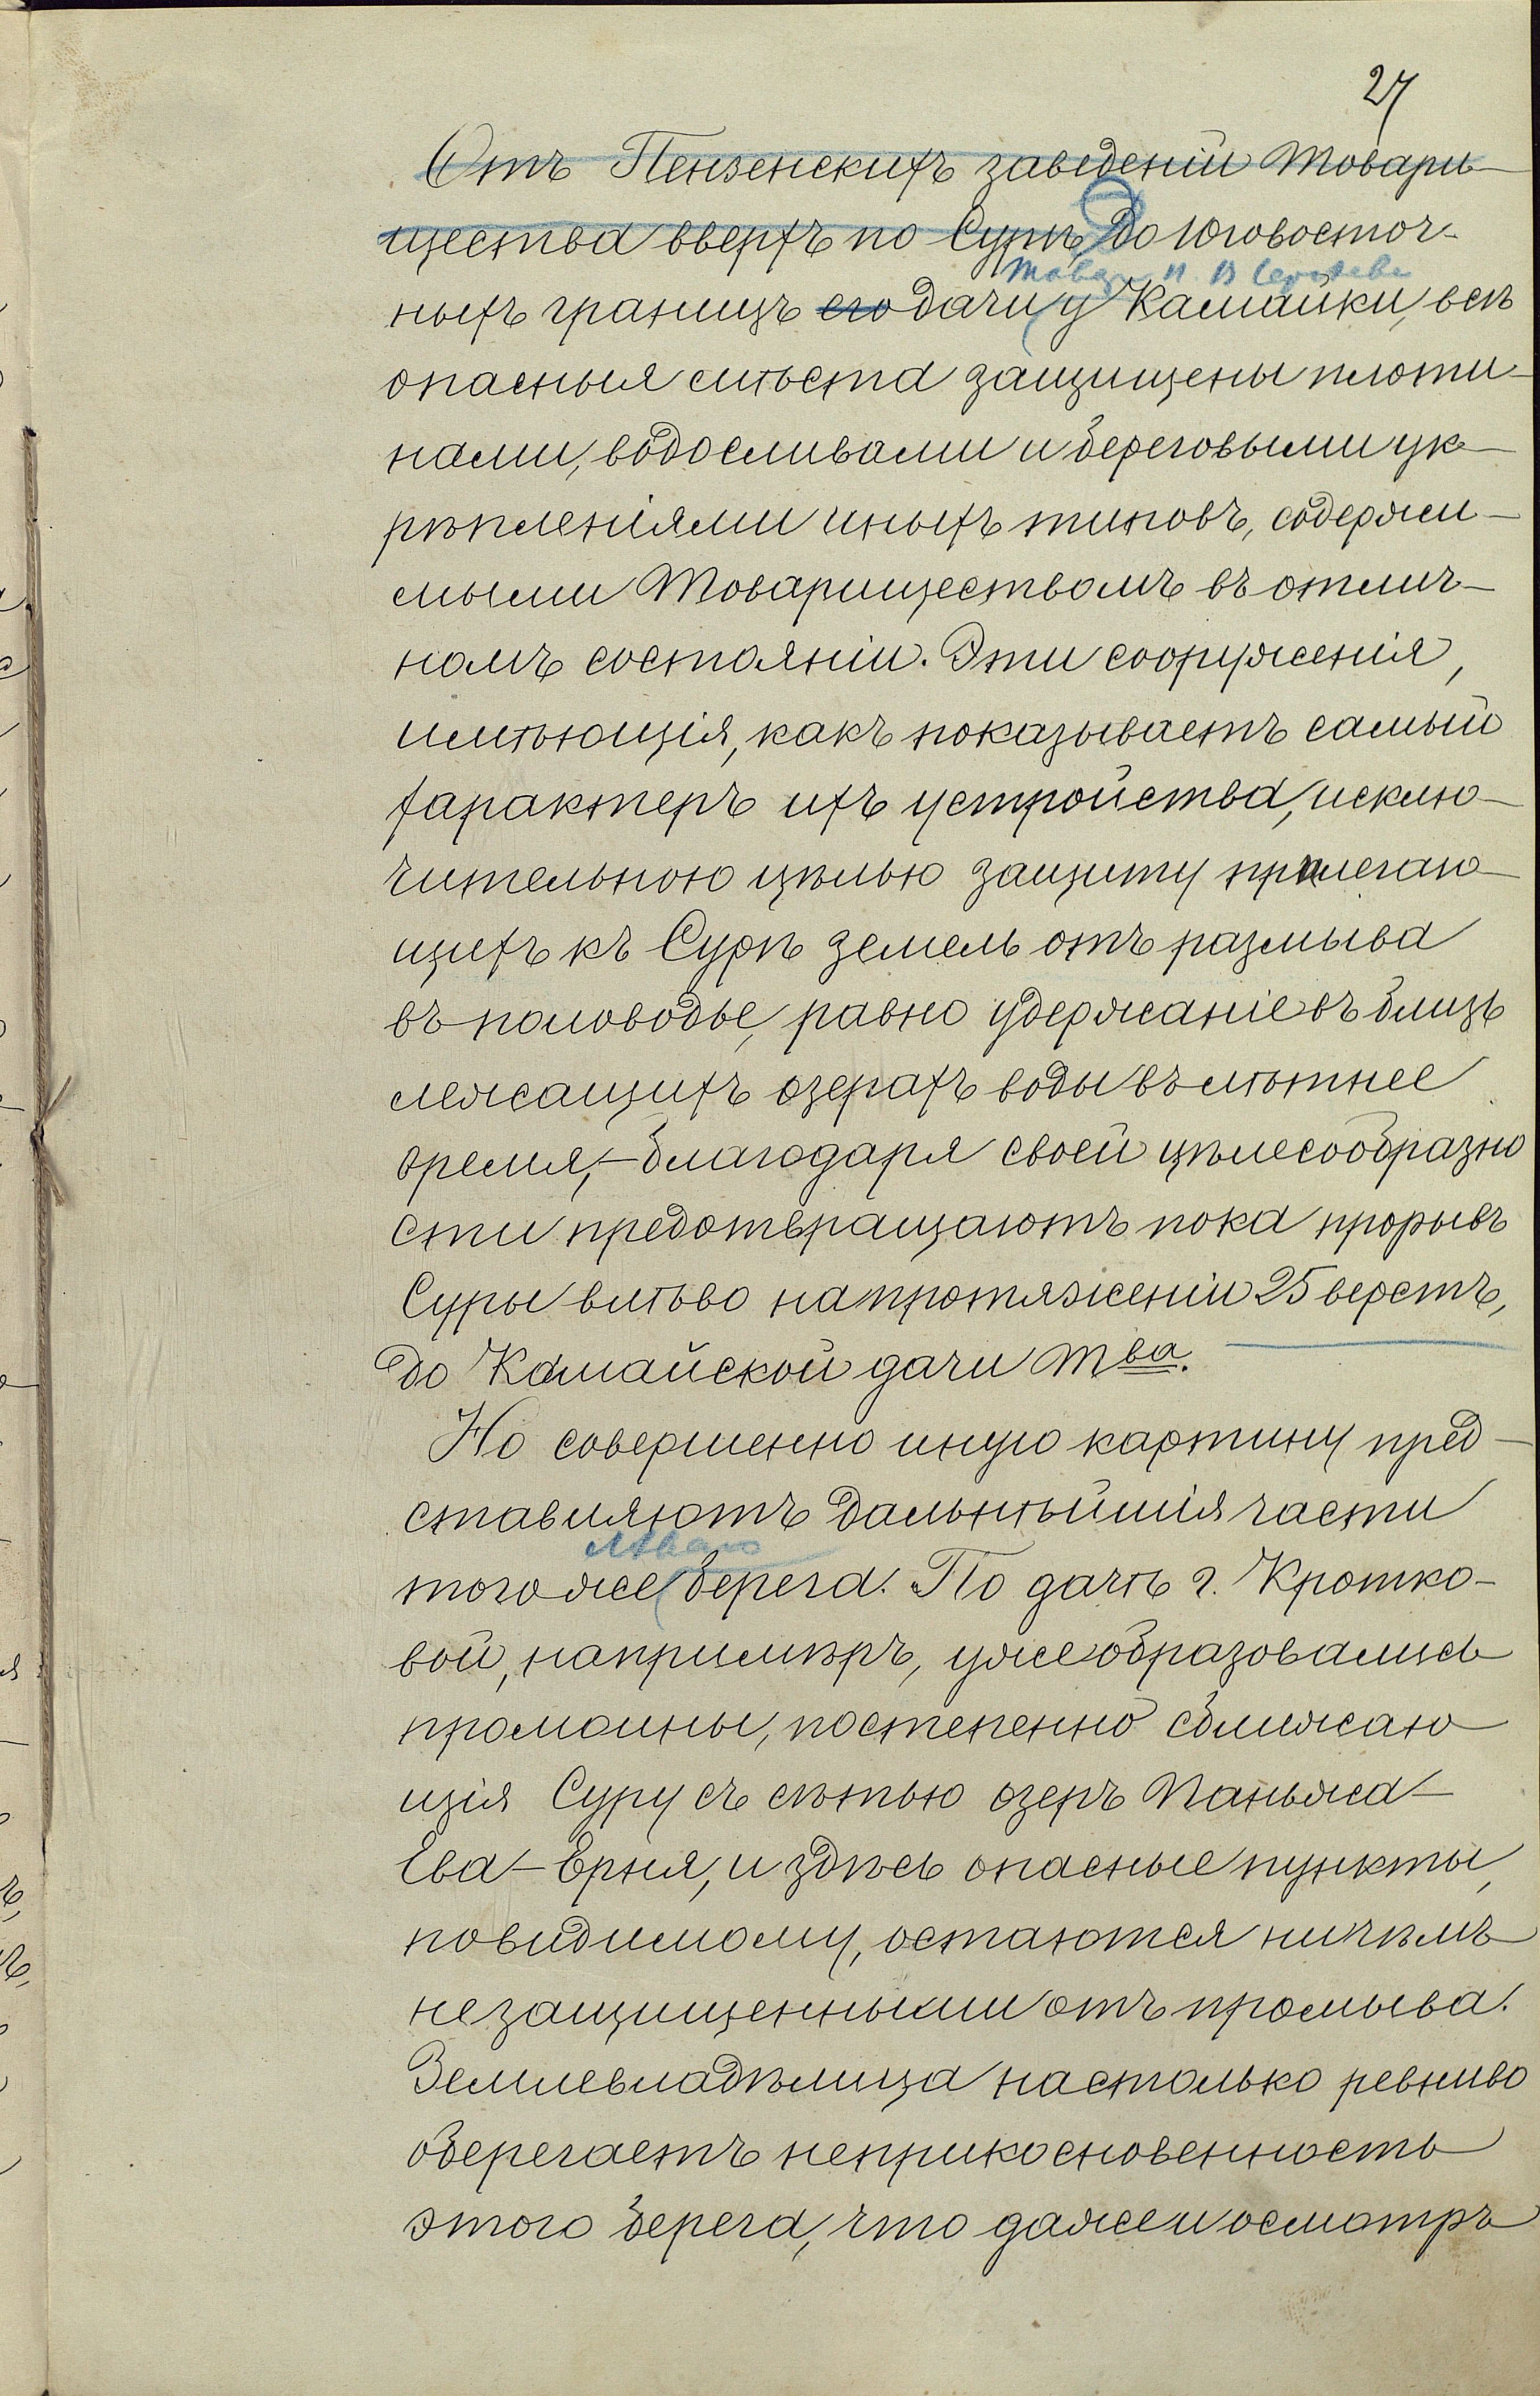 27
Отъ Пензенскихъ заведеній Товари-
щества вверхъ по Сурѣ, до юговосточ-
Това
ныхъ границъ его дачи у Камайки, всѣ
опасныя мѣста защищены плоти-
нами, водосливами и береговыми ук-
рѣпленіями иныхъ типовъ, содержи-
мыми Товариществомъ въ отлич-
номъ состояніи. Эти сооруженія,
имѣющія, какъ показываетъ самый
характеръ ихъ устройства, исклю-
чительною цѣлью защиту прилегаю-
щихъ къ Сурѣ земель отъ размыва
въ половодье, равно удержаніе въ близь
лежащихъ озерахъ воды въ лѣтнее
время,- благодаря своей цѣлесообразно
сти предотвращаютъ пока прорывъ
Суры влѣво на протяженіи 25 верстъ,
до Камайской дачи Тва.
Но совершенно иную картину пред-
ставляютъ дальнѣйшія части
лѣваго
того же берега. По дачѣ г. Кротко-
вой, напримѣръ, уже образовались
промоины, постепенно сближаю
щія Суру съ сѣтью озеръ Паньжа-
Ева-Ерня, и здѣсь опасные пункты,
повидимому, остаются ничѣмъ
незащищенными отъ промыва.
Землевладѣлица настолько ревниво
оберегаетъ неприкосновенность
этого берега, что даже и осмотръ